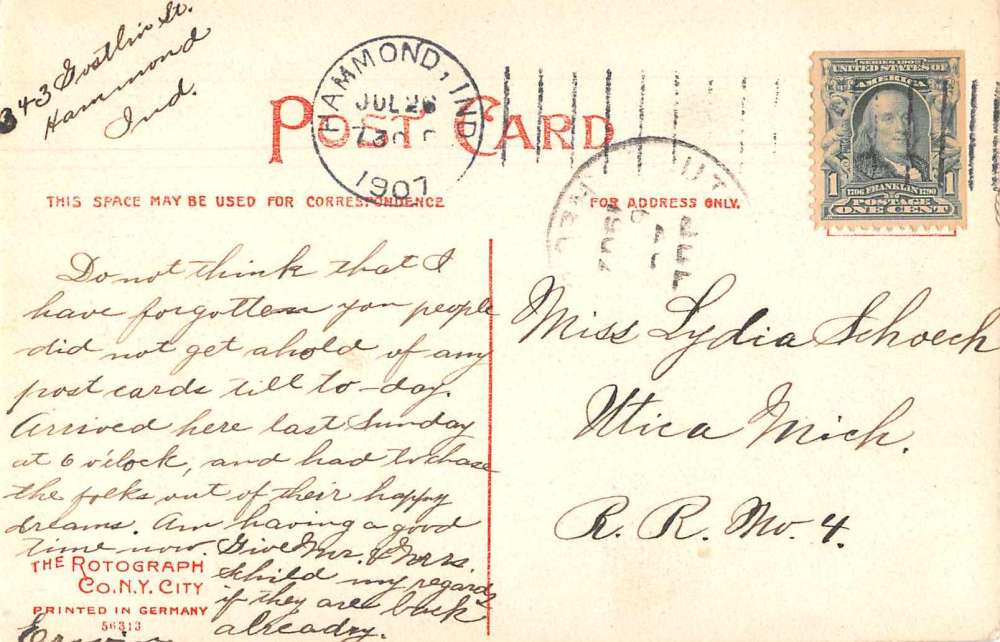 343 Gostlin St.
Hammond
Ind.
HAMMOND, IND
JUL 26
730 P
1907
POST CARD
THIS SPACE MAY BE USED FOR CORRESPONDENCE
FOR ADDRESS ONLY.
SERIES 1902
UNITED STATES OF
AMERICA
1 1
1706 FRANKLIN 1790
POSTAGE
ONE CENT
Do not think that I
have forgotten you people
did not get ahold of any
post cards till to-day.
Arrived here last Sunday
at 6 o'clock, and had to chase
the folks out of their happy
dreams. Am having a good
time now. Give Mr. & Mrs.
Schild my regards
if they are back
alreadry.
Miss Lydia Schoech
Utica Mich.
R. R. No. 4.
THE ROTOGRAPH
CO. N.Y. CITY
PRINTED IN GERMANY
56313